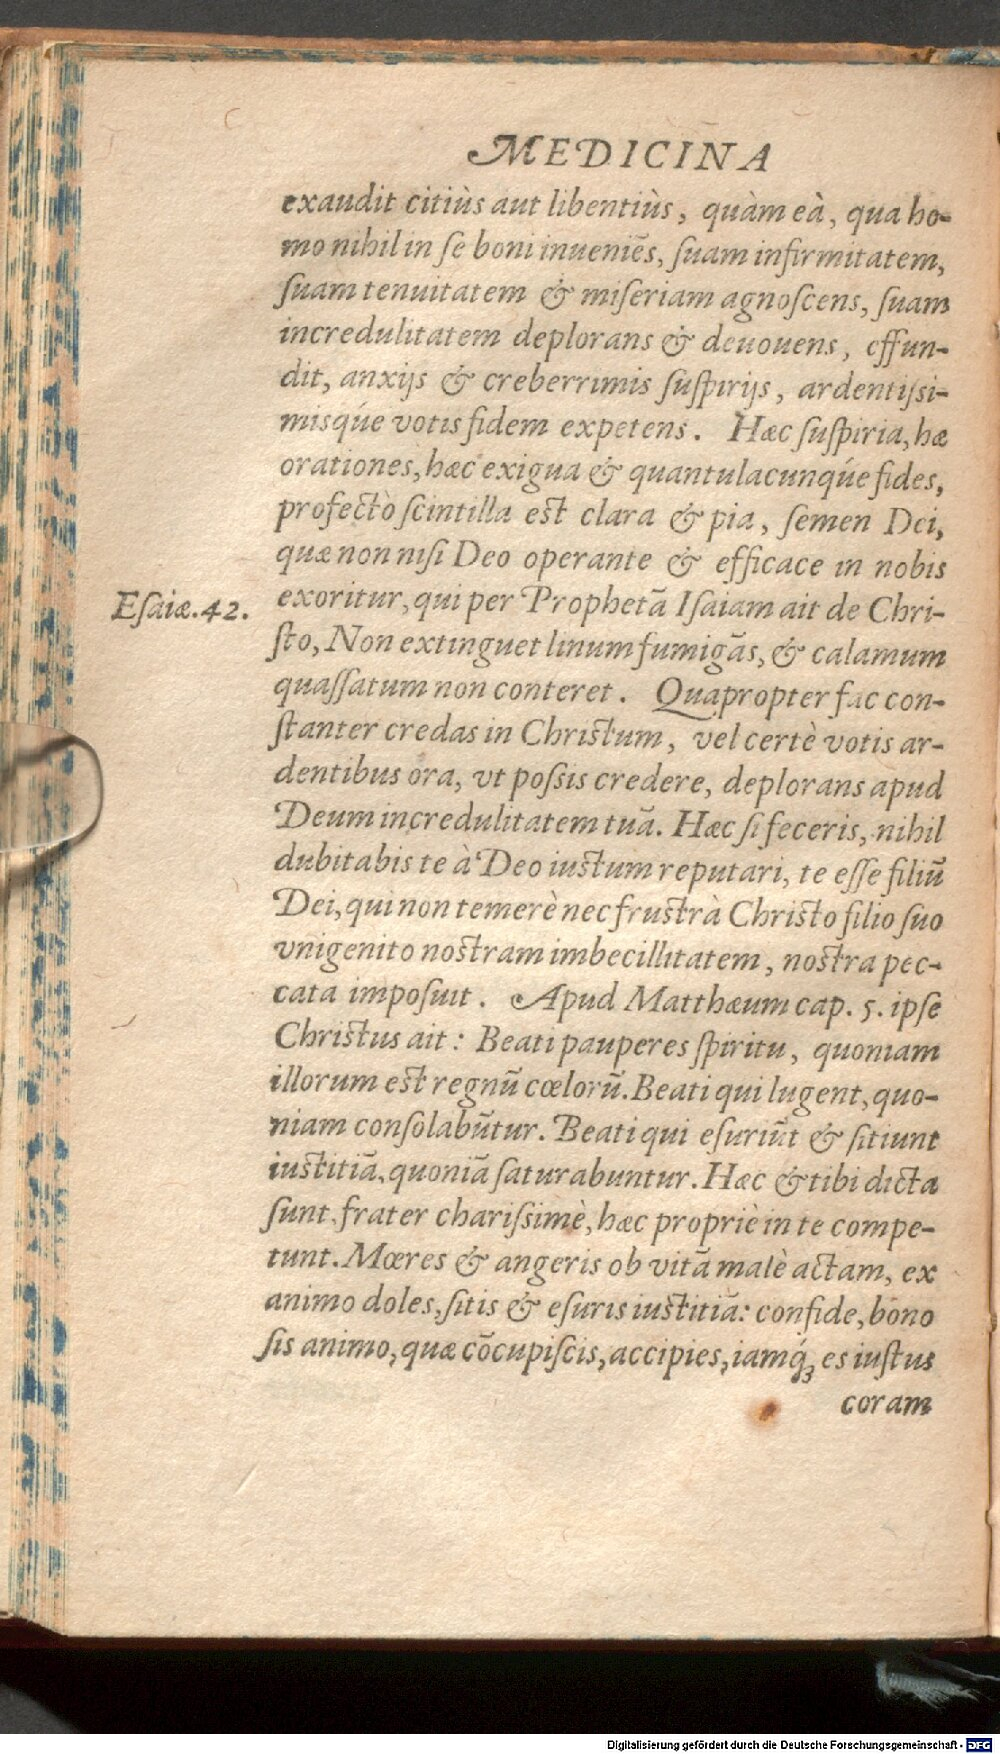 MEDICINA
exaudit citiùs aut libentiùs, quàm eà, qua ho-
mo nihil in se boni inueniēs, suam infirmitatem,
suam tenuitatem & miseriam agnoscens, suam
incredulitatem deplorans & deuouens, effun-
dit, anxijs & creberrimis suspirijs, ardentissi-
misq́ue votis fidem expetens. Hæc suspiria, hæ
orationes, hæc exigua & quantulacunq́ue fides,
profectò scintilla est clara & pia, semen Dei,
quæ non nisi Deo operante & efficace in nobis
Esaiæ.42.
exoritur, qui per Prophetā Isaiam ait de Chri-
sto, Non extinguet linum fumigās, & calamum
quassatum non conteret. Quapropter fac con-
stanter credas in Christum, vel certè votis ar-
dentibus ora, vt possis credere, deplorans apud
Deum incredulitatem tuā. Hæc si feceris, nihil
dubitabis te à Deo iustum reputari, te esse filiū
Dei, qui non temerè nec frustrà Christo filio suo
vnigenito nostram imbecillitatem, nostra pec-
cata imposuit. Apud Matthæum cap. 5. ipse
Christus ait: Beati pauperes spiritu, quoniam
illorum est regnū cœlorū. Beati qui lugent, quo-
niam consolabūtur. Beati qui esuriūt & sitiunt
iustitiā, quoniā saturabuntur. Hæc & tibi dicta
sunt, frater charissimè, hæc propriè in te compe-
tunt. Mœres & angeris ob vitā malè actam, ex
animo doles, sitis & esuris iustitiā: confide, bono
sis animo, quæ cōcupiscis, accipies, iamq́ꝫ es iustus
coram
Digitalisierung gefördert durch die Deutsche Forschungsgemeinschaft - DFG